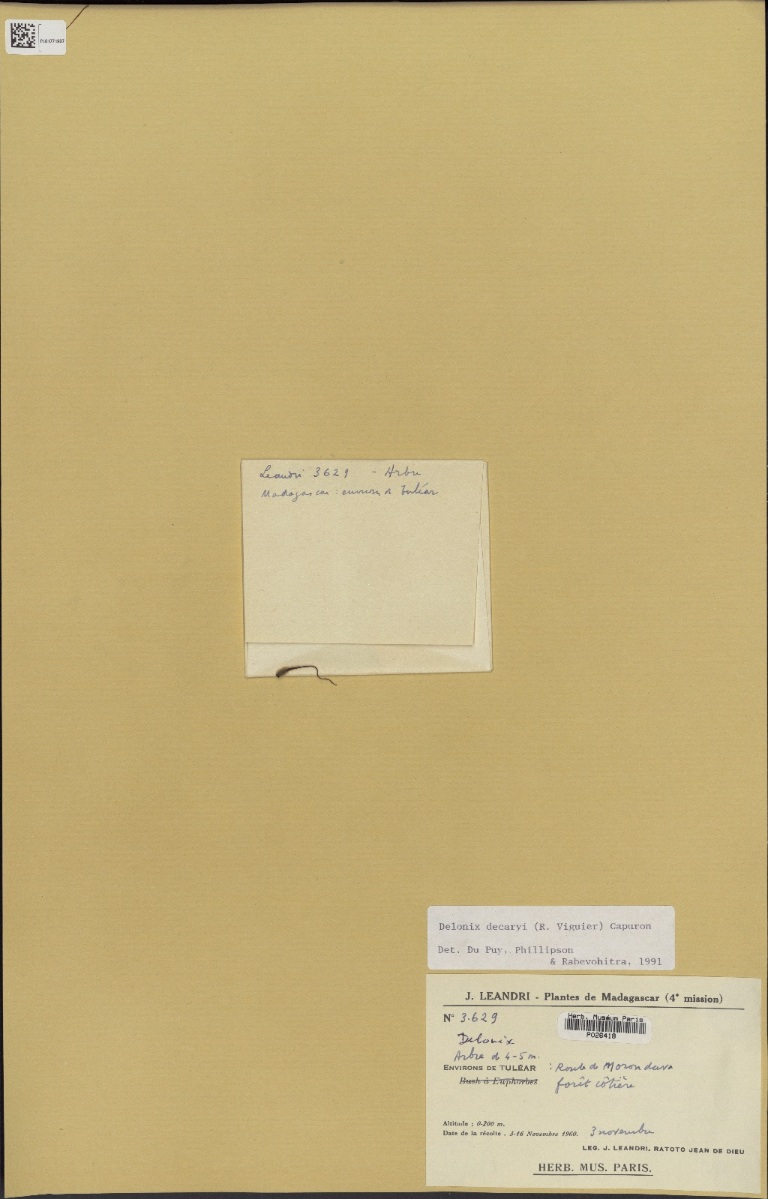 Leandri 3629 - Arbre
Madagascar : environs de Tuléar
Delonix decaryi (R. Viguier) Capuron
Det. Du Puy, Phillipson
& Rabevohitra, 1991
J. LEANDRI - Plantes de Madagascar (4e mission)
N° 3.629
Herb. Muséum Paris
P026418
Delonix
Arbre de 4-5 m.
ENVIRONS DE TULÉAR : Route de Morondava
Bush à Euphorbes forêt côtière
Altitude : 0-200 m.
Date de la récolte : 3-16 Novembre 1960. 3 novembre
LEG. J. LEANDRI, RATOTO JEAN DE DIEU
HERB. MUS. PARIS.